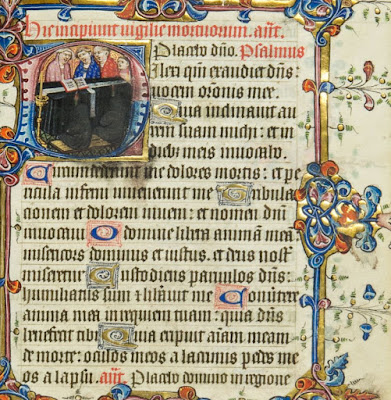 Hic incipiunt vigilie mortuorum. ant.
Placebo dno. Psalmus
Dilexi qm exaudiet dns:
vocem oronis mee.
Quia inclinavit au
rem suam michi: et in
dieb meis invocabo.
Circumdederunt me dolores mortis: et pe
ricula inferni invenerunt me Tribula
tionem et dolorem inveni: et nomen dni
invocavi O domine libera animam meā
misericors dominus et iustus. et deus nost
miseretur Custodiens parvulos dns:
humiliatus sum et libavit me Convertere
anima mea in requiem tuam: quia dns
benefecit tibi Quia eripuit aiam meam
de morte: oculos meos a lacrimis pedes me
os a lapsu. ant. Placebo domino in regione